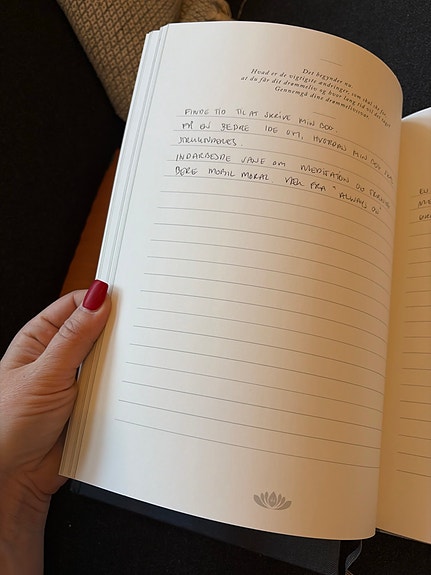 Det begynder nu.
Hvad er de vigtigste ændringer, som skal ske for,
at du får dit drømmeliv og hvor lang tid vil det tage?
Gennemgå dine drømmelivsvaner.
FINDE TID TIL AT SKRIVE MIN BOG.
FÅ EN BEDRE IDE OM, HVORDAN MIN BOG SKAL
STRUKTURERES.
INDARBEJDE VANE OM MEDITATION OG
BEDRE MOBIL MORAL VÆK FRA "ALWAYS ON"
EN